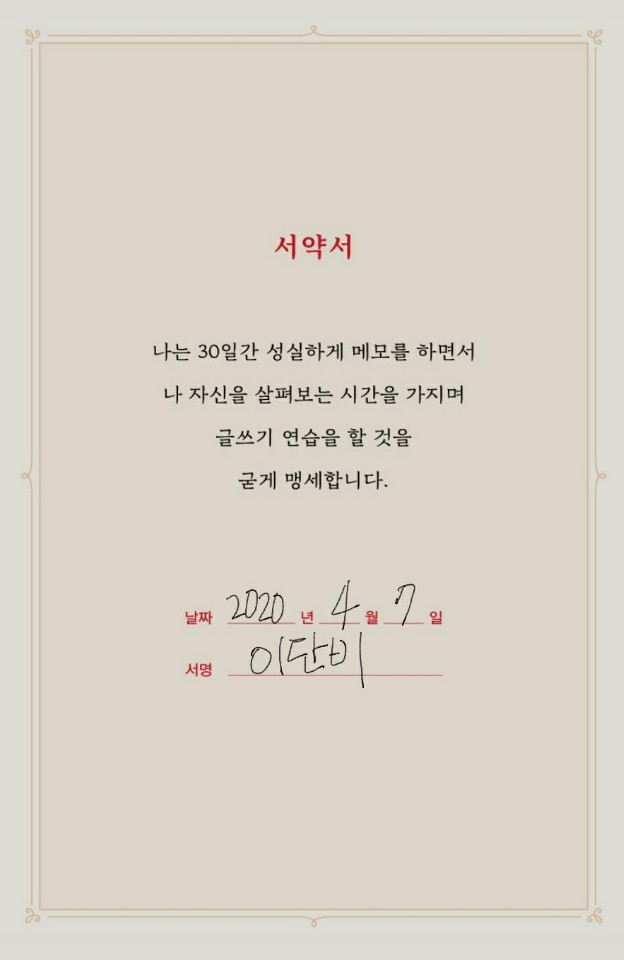 서약서
나는 30일간 성실하게 메모를 하면서
나 자신을 살펴보는 시간을 가지며
글쓰기 연습을 할 것을
굳게 맹세합니다.
날짜 2020 년 4 월 7 일
서명 이단비